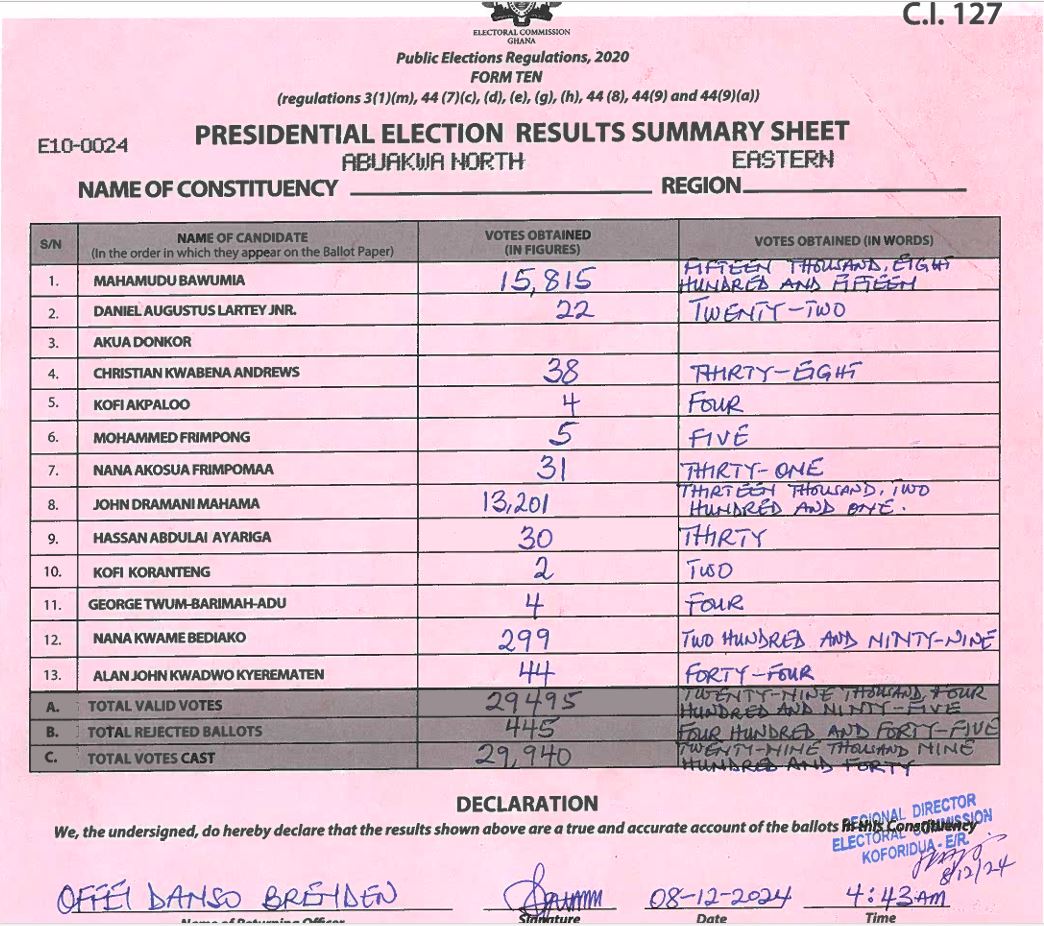 C.I. 127
ELECTORAL COMMISSION
GHANA
Public Elections Regulations, 2020
FORM TEN
(regulations 3(1)(m), 44 (7)(c), (d), (e), (g), (h), 44 (8), 44(9) and 44(9)(a))
E10-0024
PRESIDENTIAL ELECTION RESULTS SUMMARY SHEET
NAME OF CONSTITUENCY ABUAKWA NORTH REGION EASTERN
S/N NAME OF CANDIDATE (In the order in which they appear on the Ballot Paper) VOTES OBTAINED (IN FIGURES) VOTES OBTAINED (IN WORDS)
1. MAHAMUDU BAWUMIA 15,815 FIFTEEN THOUSAND, EIGHT HUNDRED AND FIFTEEN
2. DANIEL AUGUSTUS LARTEY JNR. 22 TWENTY-TWO
3. AKUA DONKOR
4. CHRISTIAN KWABENA ANDREWS 38 THIRTY-EIGHT
5. KOFI AKPALOO 4 FOUR
6. MOHAMMED FRIMPONG 5 FIVE
7. NANA AKOSUA FRIMPOMAA 31 THIRTY-ONE
8. JOHN DRAMANI MAHAMA 13,201 THIRTEEN THOUSAND, TWO HUNDRED AND ONE.
9. HASSAN ABDULAI AYARIGA 30 THIRTY
10. KOFI KORANTENG 2 TWO
11. GEORGE TWUM-BARIMAH-ADU 4 FOUR
12. NANA KWAME BEDIAKO 299 TWO HUNDRED AND NINTY-NINE
13. ALAN JOHN KWADWO KYEREMATEN 44 FORTY-FOUR
A. TOTAL VALID VOTES 29495 TWENTY-NINE THOUSAND, FOUR HUNDRED AND NINTY-FIVE
B. TOTAL REJECTED BALLOTS 445 FOUR HUNDRED AND FORTY-FIVE
C. TOTAL VOTES CAST 29,940 TWENTY-NINE THOUSAND NINE HUNDRED AND FORTY
DECLARATION
We, the undersigned, do hereby declare that the results shown above are a true and accurate account of the ballots in this Constituency
REGIONAL DIRECTOR
ELECTORAL COMMISSION
KOFORIDUA - E/R.
8/12/24
OFFEI DANSO BREYDEN 08-12-2024 4:43AM
Name of Returning Officer Signature Date Time